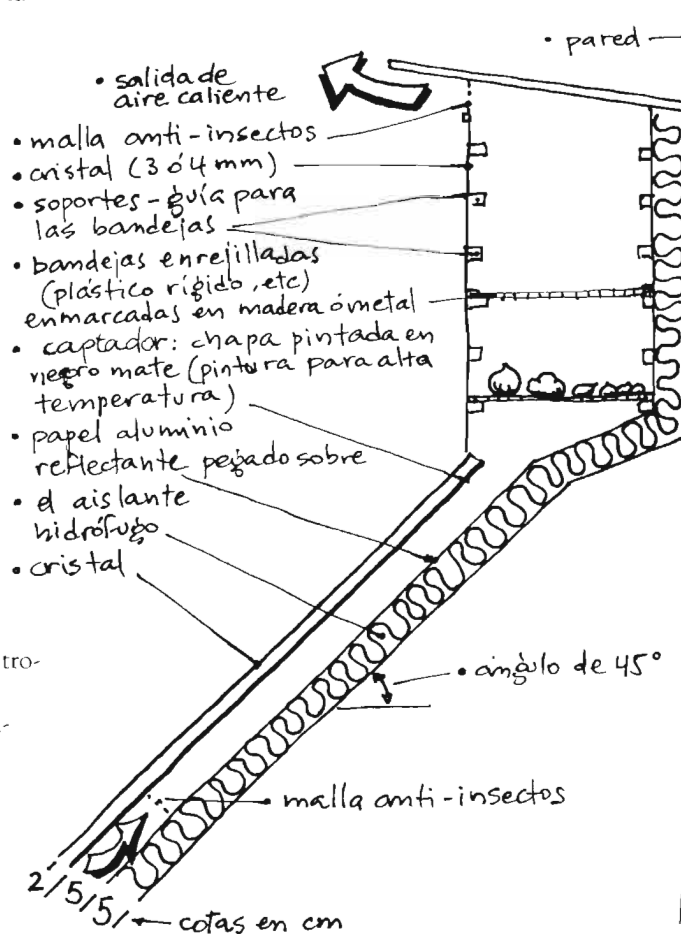 • pared
• salida de
aire caliente
• malla anti-insectos
• cristal (3 ó 4 mm)
• soportes-guía para
las bandejas
• bandejas enrejilladas
(plástico rígido, etc)
enmarcadas en madera ó metal
• captador: chapa pintada en
negro mate (pintura para alta
temperatura)
• papel aluminio
reflectante pegado sobre
• el aislante
hidrófugo
• cristal
tro-
• ángulo de 45°
• malla anti-insectos
2/5/5/ cotas en cm